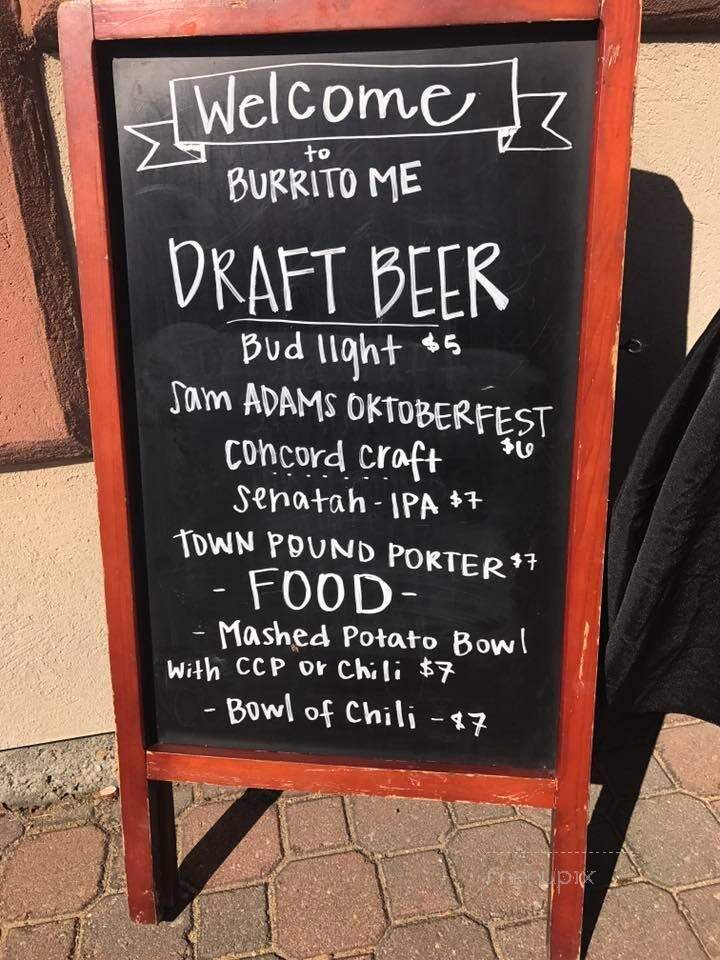 Welcome
to
BURRITO ME
DRAFT BEER
Bud light $5
Sam ADAMS OKTOBERFEST
$6
concord craft
senatah - IPA $7
TOWN POUND PORTER $7
- FOOD -
- Mashed Potato Bowl
With CCP or Chili $7
- Bowl of Chili - $7
menupix